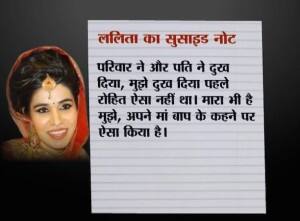 ललिता का सुसाइड नोट
परिवार ने और पति ने दुख
दिया, मुझे दुख दिया पहले
रोहित ऐसा नहीं था। मारा भी है
मुझे, अपने मां बाप के कहने पर
ऐसा किया है।